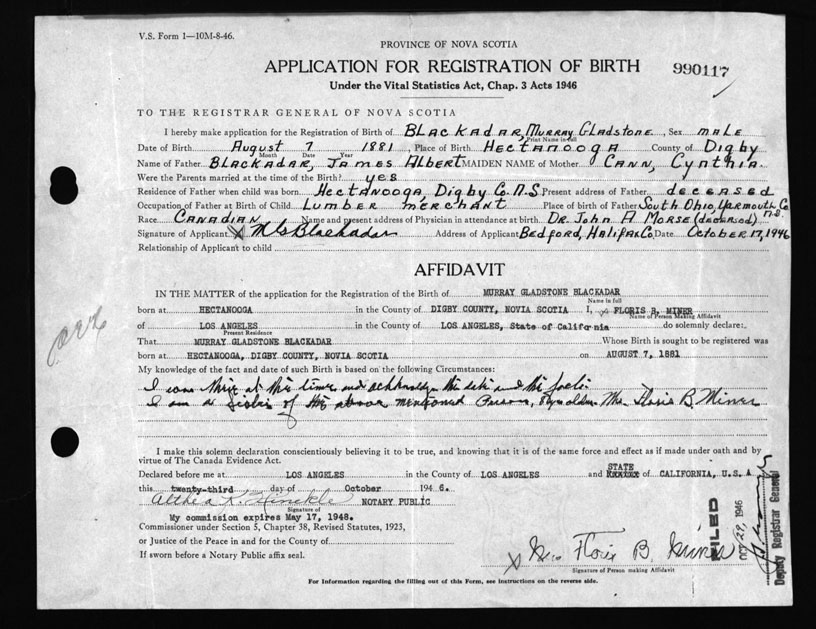 V.S. Form 1—10M-8-46.
PROVINCE OF NOVA SCOTIA
APPLICATION FOR REGISTRATION OF BIRTH
990117
Under the Vital Statistics Act, Chap. 3 Acts 1946
TO THE REGISTRAR GENERAL OF NOVA SCOTIA
I hereby make application for the Registration of Birth of BLACKADAR, MURRAY GLADSTONE, Sex MALE
Print Name in full
Date of Birth August 7 1881, Place of Birth HECTANOOGA County of DIGBY
Month Date Year
Name of Father BLACKADAR, JAMES ALBERT MAIDEN NAME of Mother CANN, CYNTHIA.
Were the Parents married at the time of Birth? yes
Residence of Father when child was born HECTANOOGA, DIGBY Co. N.S. Present address of Father deceased
Occupation of Father at Birth of Child LUMBER MERCHANT Place of birth of Father South Ohio, Yarmouth Co. N.S.
Race CANADIAN Name and present address of Physician in attendance at birth DR. JOHN A MORSE (deceased)
Signature of Applicant X M G Blackadar Address of Applicant BEDFORD, HALIFAX Co. Date OCTOBER 17, 1946
Relationship of Applicant to child
AFFIDAVIT
IN THE MATTER of the application for the Registration of Birth of MURRAY GLADSTONE BLACKADAR
Name in full
born at HECTANOOGA in the County of DIGBY COUNTY, NOVIA SCOTIA I, x FLORIS B. MINER
Name of Person Making Affidavit
of LOS ANGELES in the County of LOS ANGELES, State of California do solemnly declare:
Present Residence
That MURRAY GLADSTONE BLACKADAR Whose Birth is sought to be registered was
born at HECTANOOGA, DIGBY COUNTY, NOVIA SCOTIA on AUGUST 7, 1881
My knowledge of the fact and date of such Birth is based on the following Circumstances:
I was there at the time and the date and the facts.
I am a Sister of the above mentioned Person, older. Mrs. Floris B. Miner
I make this solemn declaration conscientiously believing it to be true, and knowing that it is of the same force and effect as if made under oath and by
virtue of The Canada Evidence Act.
Declared before me at LOS ANGELES in the County of LOS ANGELES and STATE of CALIFORNIA, U.S.A
this twenty-third day of October 194 6.
Althea K. Hinckle NOTARY PUBLIC
Signature of
My commission expires May 17, 1948.
Commissioner under Section 5, Chapter 38, Revised Statutes, 1923,
or Justice of the Peace in and for the County of
If sworn before a Notary Public affix seal.
X Mrs Floris B. Miner
Signature of Person making Affidavit
FILED
OCT 29, 1946
Deputy Registrar General
For Information regarding the filling out of this Form, see instructions on the reverse side.